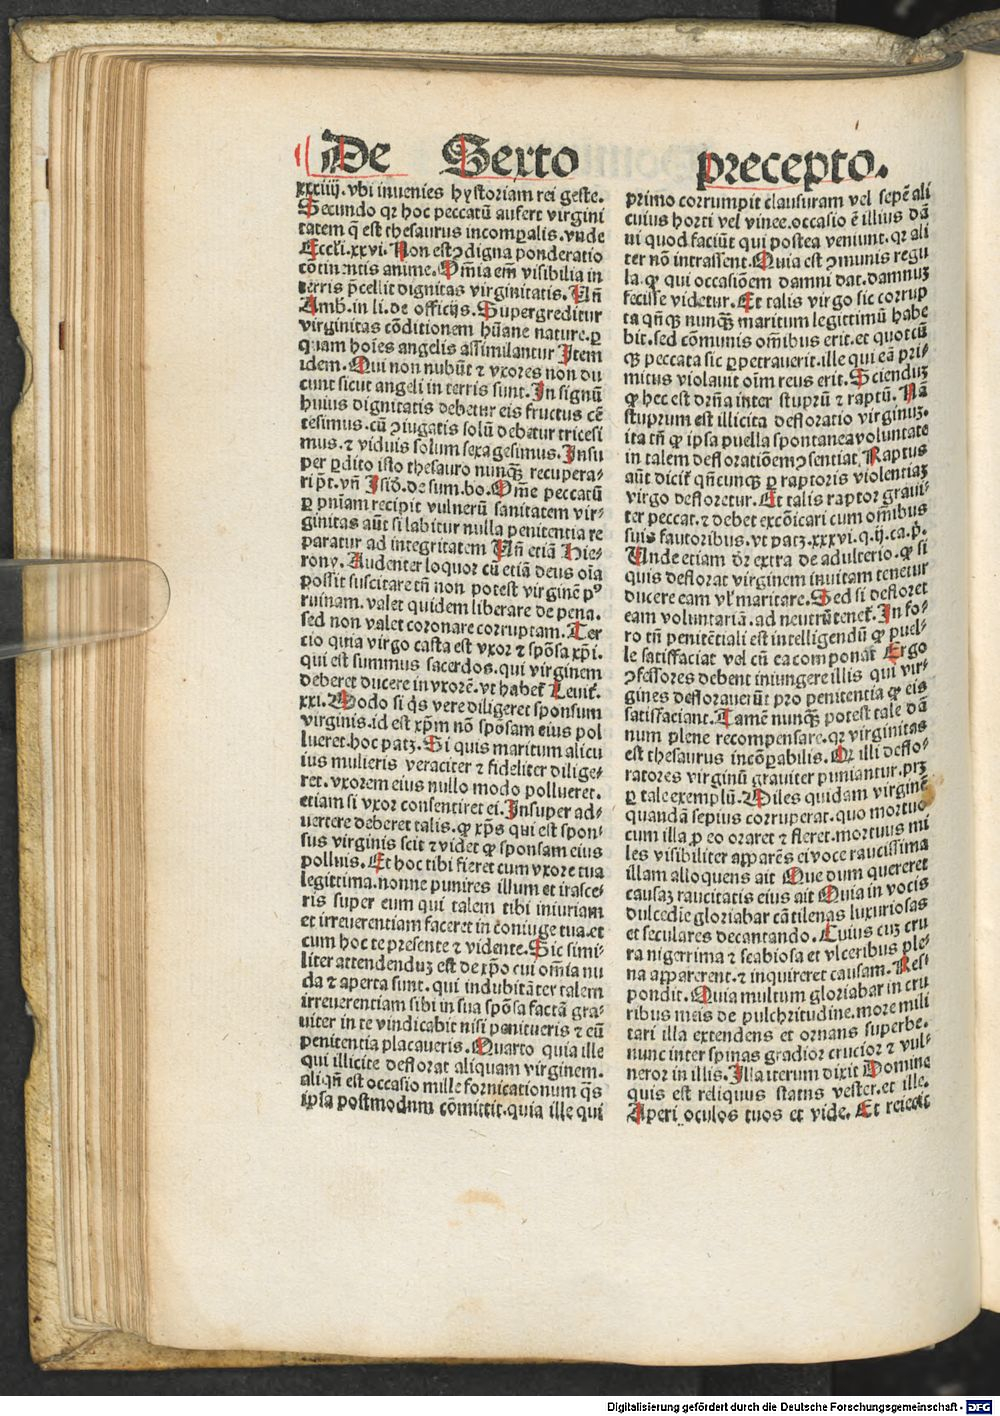 De Sexto precepto.
xxxiiij. vbi inuenies hystoriam rei geste.
Secundo qꝛ hoc peccatū aufert virgini
tatem q̄ est thesaurus incomꝑalis. vnde
Eccłi. xxvi. Non est ꝯdigna ponderatio
cōtinentis anime. Om̄ia em̄ visibilia in
terris p̄cellit dignitas virginitatis. Uñ
Amb. in li. de officijs. Supergreditur
virginitas cōditionem hūane nature. ꝑ
quam hoīes angelis assimilantur Item
idem. Qui non nubūt ⁊ vxores non du
cunt sicut angeli in terris sunt. In signū
huius dignitatis debetur eis fructus cē
tesimus. cū ꝯiugatis solū debetur tricesi
mus. ⁊ viduis solum sexagesimus. Insu
per ꝑdito isto thesauro nunqꝫ recupera-
ri p̄t. vñ Isid̄. de sum. bo. Om̄e peccatū
ꝑ pn̄iam recipit vulnerū sanitatem vir-
ginitas aūt si labitur nulla penitentia re
paratur ad integritatem Uñ etiā Hie-
rony. Audenter loquor cū etiā deus oīa
possit suscitare tn̄ non potest virginē pꝰ
ruinam. valet quidem liberare de pena.
sed non valet coronare corruptam. Ter
cio quia virgo casta est vxor ⁊ spōsa xp̄i.
qui est summus sacerdos. qui virginem
deberet ducere in vxorē. vt habet̄ Leuit̄.
xxi. Modo si q̇s vere diligeret sponsum
virginis. id est xp̄m nō sposam eius pol
lueret. hoc patꝫ. Si quis maritum alicu
ius mulieris veraciter ⁊ fideliter dilige-
ret. vxorem eius nullo modo pollueret.
etiam si vxor consentiret ei. Insuper ad-
uertere deberet talis. ꝙ xp̄s qui est spon-
sus virginis scit ⁊ videt ꝙ sponsam eius
polluis. Et hoc tibi fieret cum vxore tua
legittima. nonne punires illum et irasce-
ris super eum qui talem tibi iniuriam
et irreuerentiam faceret in coniuge tua. et
cum hoc te presente ⁊ vidente. Sic simi-
liter attendenduꝫ est de xp̄o cui om̄ia nu
da ⁊ aperta sunt. qui indubitāter talem
irreuerentiam sibi in sua spōsa factā gra-
uiter in te vindicabit nisi penitueris ⁊ eū
penitentia placaueris. Quarto quia ille
qui illicite deflorat aliquam virginem.
aliqn̄ est occasio mille fornicationum q̄s
ipsa postmodum cōmittit. quia ille qui
primo corrumpit clausuram vel sepē ali
cuius horti vel vinee. occasio ē illius dā
ni quod faciūt qui postea veniunt. qꝛ ali
ter nō intrassent. Quia est ꝯmunis regu
la. ꝙ qui occasiōem damni dat. damnuꝫ
fecisse videtur. Et talis virgo sic corrup
ta qn̄qꝫ nunqꝫ maritum legittimū habe
bit. sed cōmunis om̄ibus erit. et quotcū
qꝫ peccata sic ꝑpetrauerit. ille qui eā pri-
mitus violauit oīm reus erit. Sciendūꝫ
ꝙ hec est dr̄ña inter stuprū ⁊ raptū. Nā
stuprum est illicita defloratio virginuꝫ.
ita tn̄ ꝙ ipsa puella spontanea voluntate
in talem defloratiōem ꝯsentiat. Raptus
aūt dicit̄ qn̄cunqꝫ ꝑ raptoris violentiaꝫ
virgo defloretur. Et talis raptor graui-
ter peccat. ⁊ debet excōicari cum om̄ibus
suis fautoribus. vt patꝫ. xxxvi. q. ij. ca. p̄.
Unde etiam dr̄ extra de adulterio. ꝙ si
quis deflorat virginem inuitam tenetur
ducere eam vł maritare. Sed si defloret
eam voluntariā. ad neutrū tenet̄. In fo-
ro tn̄ penitētiali est intelligendū ꝙ puel-
le satisfaciat vel cū ea componat Ergo
ꝯfessores debent iniungere illis qui vir-
gines deflorauerūt pro penitentia ꝙ eis
satisfaciant. Tamē nunqꝫ potest tale dā
num plene recompensare. qꝛ virginitas
est thesaurus incōꝑabilis. Qꝛ illi deflo-
ratores virginū grauiter puniantur. prꝫ
ꝑ tale exemplū. Miles quidam virginē
quandā sepius corruperat. quo mortuo
cum illa ꝓ eo oraret ⁊ fleret. mortuus mi
les visibiliter apparēs ei voce raucissima
illam alloquens ait Que dum quereret
causaꝫ raucitatis eius ait Quia in vocis
dulcedīe gloriabar cātilenas luxuriosas
et seculares decantando. Cuius cuꝫ cru
ra nigerrima ⁊ scabiosa et vlceribus ple-
na apparerent. ⁊ inquireret causam. Res-
pondit. Quia multum gloriabar in cru
ribus meis de pulchritudine. more mili
tari illa extendens et ornans superbe.
nunc inter spinas gradior crucior ⁊ vul-
neror in illis. Illa iterum dixit Domine
quis est reliquus status vester. et ille.
Aperi oculos tuos et vide. Et reiecit
Digitalisierung gefördert durch die Deutsche Forschungsgemeinschaft - DFG